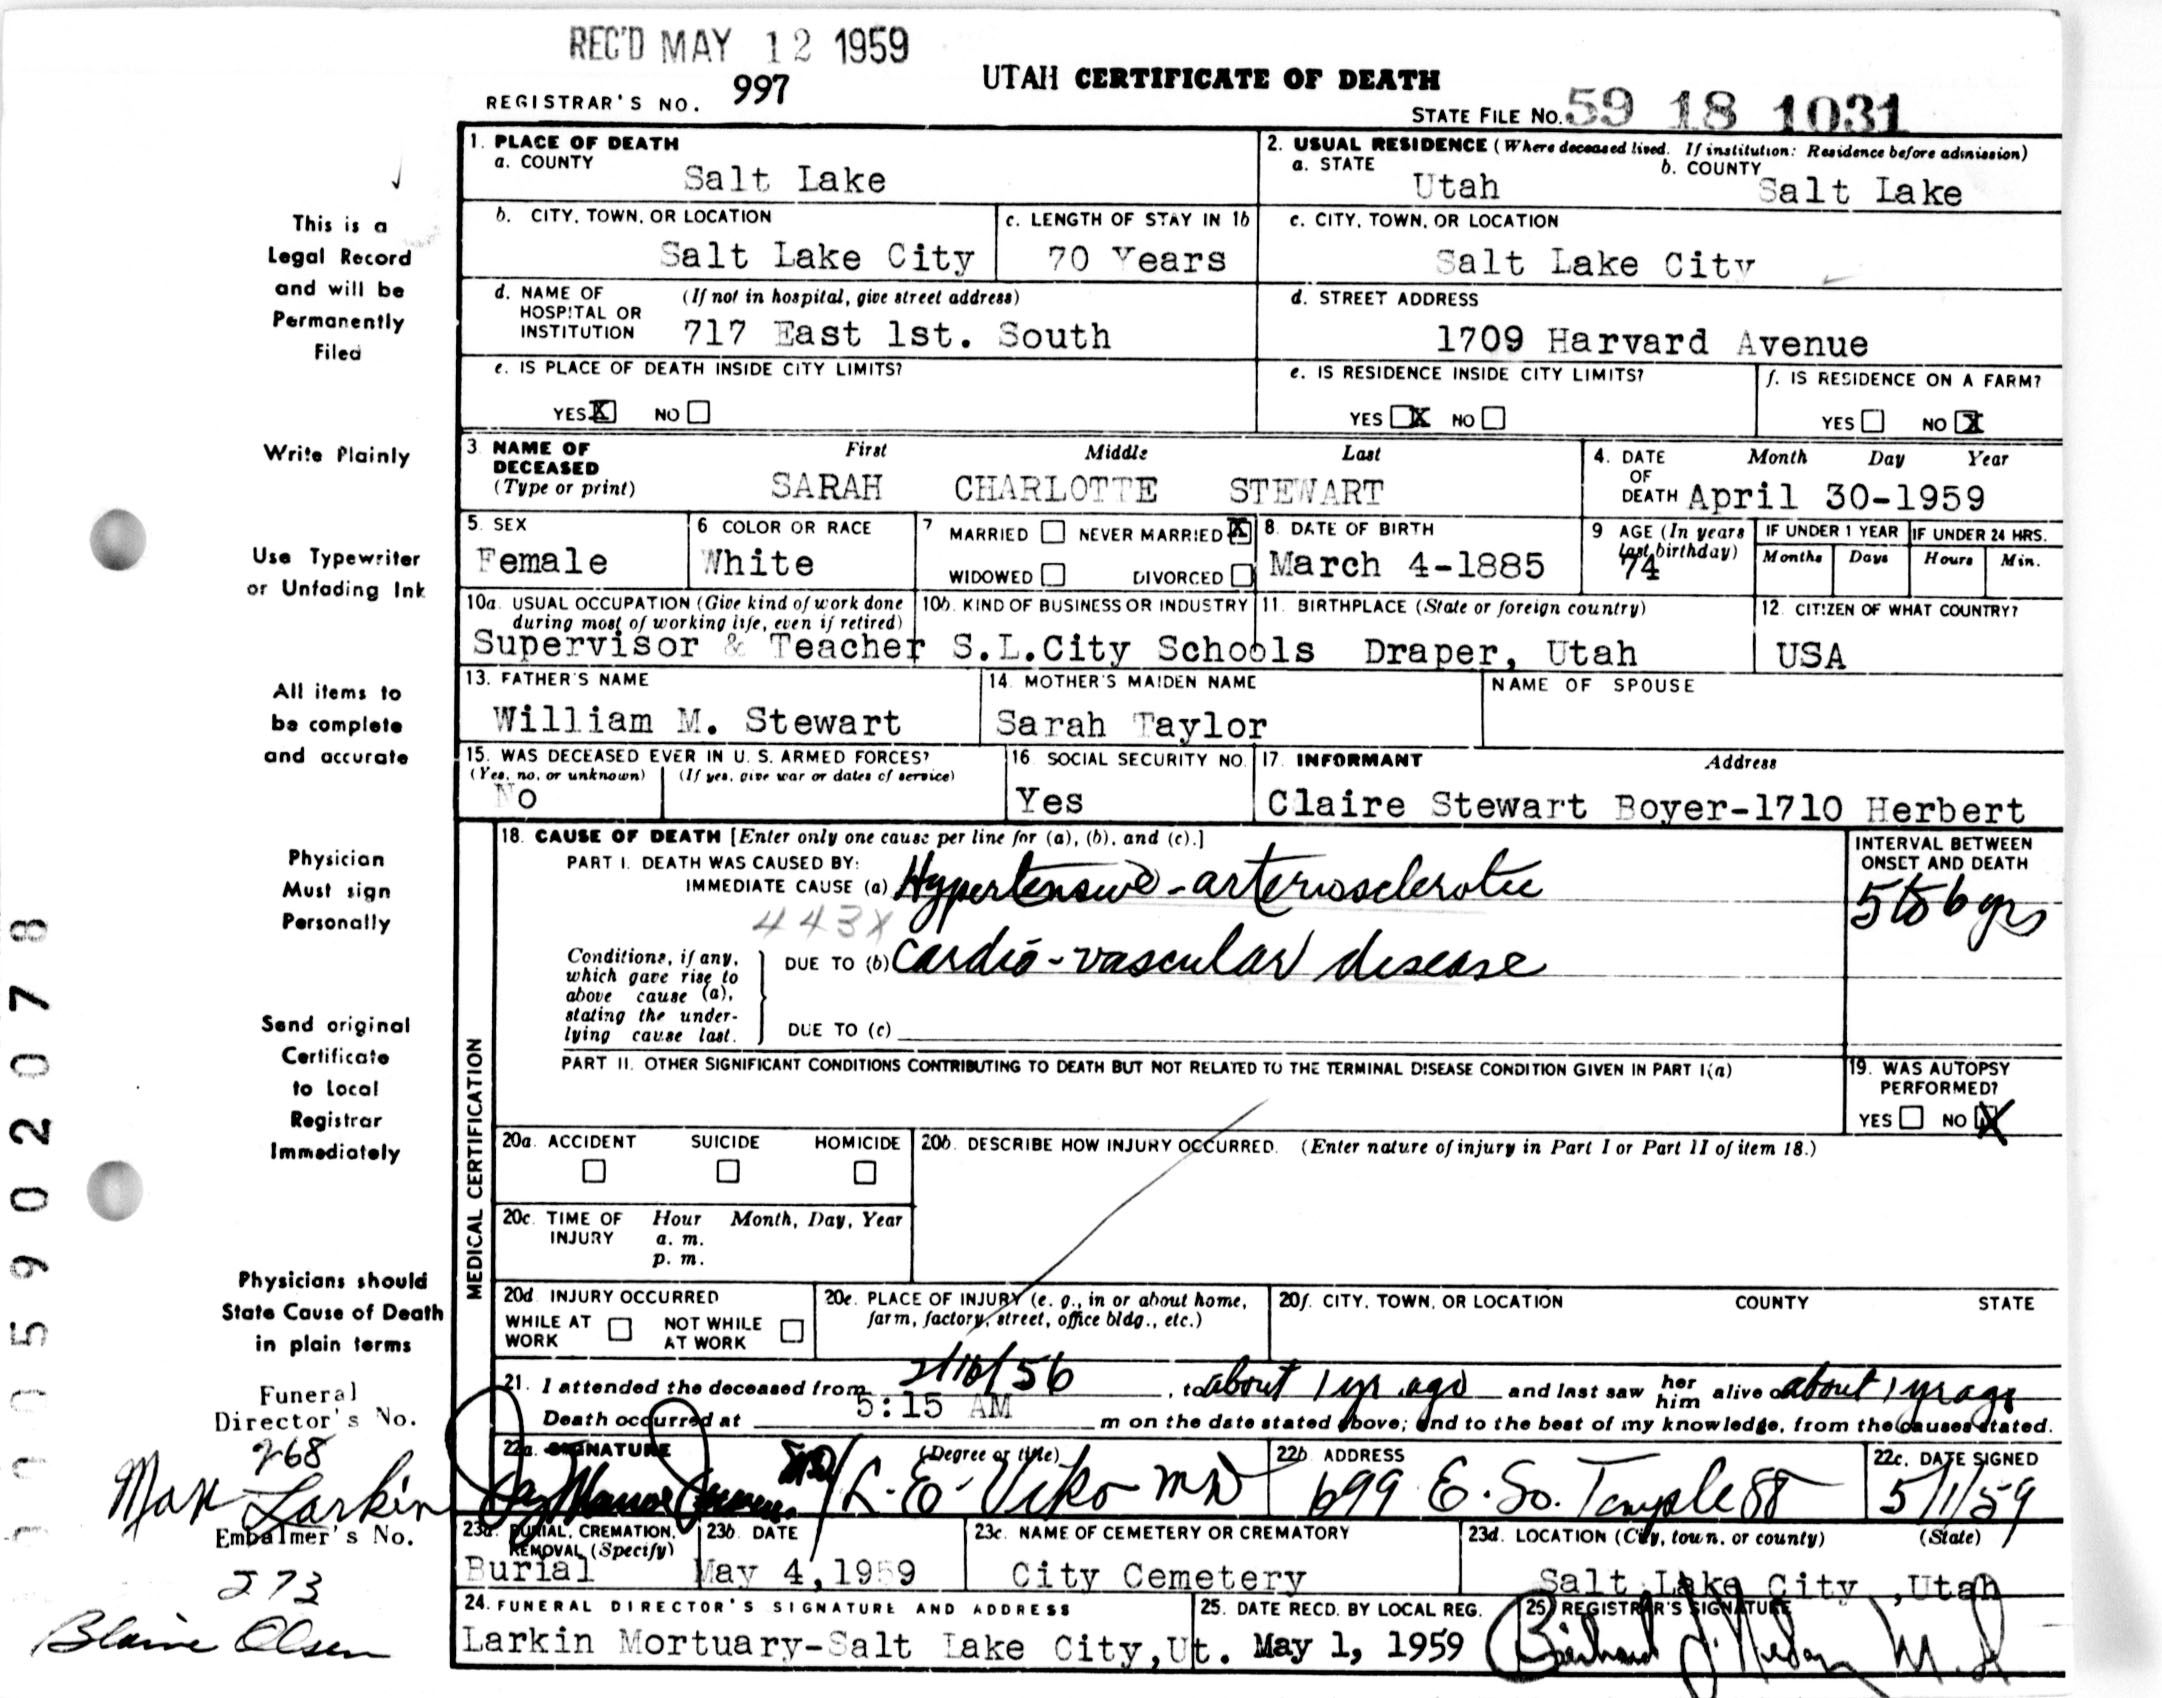 REC'D MAY 12 1959
REGISTRAR'S NO. 997
UTAH CERTIFICATE OF DEATH
STATE FILE No. 59 18 1031
This is a
Legal Record
and will be
Permanently
Filed
Write Plainly
Use Typewriter
or Unfading Ink
All items to
be complete
and accurate
Physician
Must sign
Personally
Send original
Certificate
to Local
Registrar
Immediately
Physicians should
State Cause of Death
in plain terms
Funeral
Director's No.
268
Max Larkin
Embalmer's No.
273
Blaine Olsen
0005902078
1. PLACE OF DEATH
a. COUNTY
Salt Lake
2. USUAL RESIDENCE (Where deceased lived. If institution: Residence before admission)
a. STATE b. COUNTY
Utah Salt Lake
b. CITY, TOWN, OR LOCATION
Salt Lake City
c. LENGTH OF STAY IN 1b
70 Years
c. CITY, TOWN, OR LOCATION
Salt Lake City
d. NAME OF HOSPITAL OR INSTITUTION (If not in hospital, give street address)
717 East 1st. South
d. STREET ADDRESS
1709 Harvard Avenue
e. IS PLACE OF DEATH INSIDE CITY LIMITS?
YES X NO
e. IS RESIDENCE INSIDE CITY LIMITS?
YES X NO
f. IS RESIDENCE ON A FARM?
YES NO X
3. NAME OF DECEASED (Type or print)
First Middle Last
SARAH CHARLOTTE STEWART
4. DATE OF DEATH Month Day Year
April 30-1959
5. SEX
Female
6 COLOR OR RACE
White
7 MARRIED NEVER MARRIED X
WIDOWED DIVORCED
8. DATE OF BIRTH
March 4-1885
9 AGE (In years last birthday)
74
IF UNDER 1 YEAR IF UNDER 24 HRS.
Months Days Hours Min.
10a. USUAL OCCUPATION (Give kind of work done during most of working life, even if retired)
Supervisor & Teacher
10b. KIND OF BUSINESS OR INDUSTRY
S.L.City Schools
11. BIRTHPLACE (State or foreign country)
Draper, Utah
12. CITIZEN OF WHAT COUNTRY?
USA
13. FATHER'S NAME
William M. Stewart
14. MOTHER'S MAIDEN NAME
Sarah Taylor
NAME OF SPOUSE
15. WAS DECEASED EVER IN U. S. ARMED FORCES?
(Yes, no, or unknown) (If yes, give war or dates of service)
No
16. SOCIAL SECURITY NO.
Yes
17. INFORMANT Address
Claire Stewart Boyer-1710 Herbert
MEDICAL CERTIFICATION
18. CAUSE OF DEATH [Enter only one cause per line for (a), (b), and (c).]
PART I. DEATH WAS CAUSED BY:
IMMEDIATE CAUSE (a) Hypertensive-arteriosclerotic
443X
Conditions, if any, which gave rise to above cause (a), stating the underlying cause last.
DUE TO (b) Cardio-vascular disease
DUE TO (c)
INTERVAL BETWEEN ONSET AND DEATH
5 to 6 yrs
PART II. OTHER SIGNIFICANT CONDITIONS CONTRIBUTING TO DEATH BUT NOT RELATED TO THE TERMINAL DISEASE CONDITION GIVEN IN PART I(a)
19. WAS AUTOPSY PERFORMED?
YES NO X
20a. ACCIDENT SUICIDE HOMICIDE
20b. DESCRIBE HOW INJURY OCCURRED. (Enter nature of injury in Part I or Part II of item 18.)
20c. TIME OF INJURY Hour Month, Day, Year
a. m.
p. m.
20d. INJURY OCCURRED
WHILE AT WORK NOT WHILE AT WORK
20e. PLACE OF INJURY (e. g., in or about home, farm, factory, street, office bldg., etc.)
20f. CITY, TOWN, OR LOCATION COUNTY STATE
21. I attended the deceased from 2/10/56, to about 1 yr ago and last saw her him alive on about 1 yr ago
Death occurred at 5:15 AM m on the date stated above; and to the best of my knowledge, from the causes stated.
22a. SIGNATURE (Degree or title)
L. E. Viko MD
22b. ADDRESS
699 E. So. Temple St
22c. DATE SIGNED
5/1/59
23a. BURIAL, CREMATION, REMOVAL (Specify)
Burial
23b. DATE
May 4,1959
23c. NAME OF CEMETERY OR CREMATORY
City Cemetery
23d. LOCATION (City, town, or county) (State)
Salt Lake City ,Utah
24. FUNERAL DIRECTOR'S SIGNATURE AND ADDRESS
Larkin Mortuary-Salt Lake City,Ut.
25. DATE RECD. BY LOCAL REG.
May 1, 1959
25 REGISTRAR'S SIGNATURE
M.D.